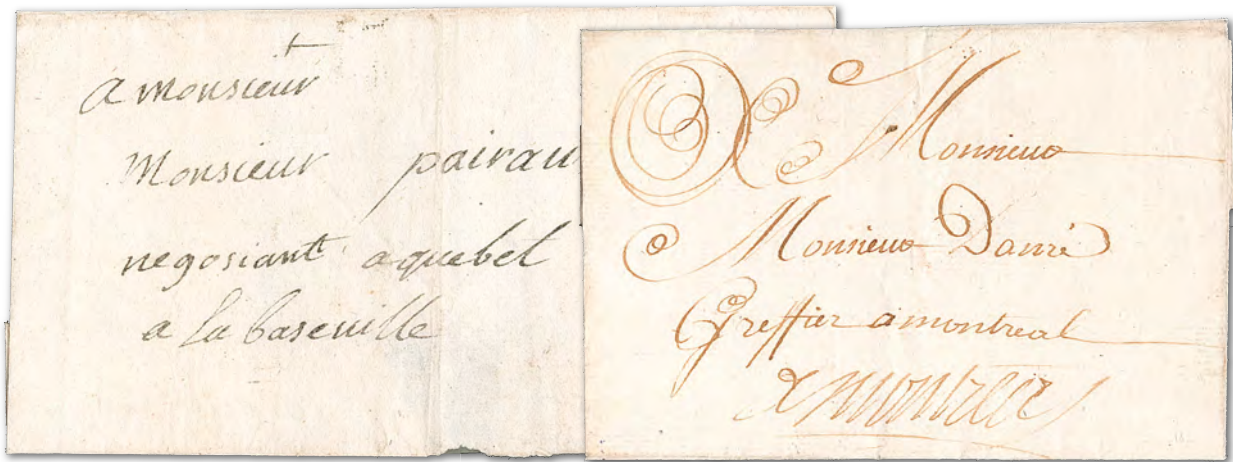 a monsieur
Monsieur pairau
negosiant aquebet
a la baseville
A Monsieur
Monsieur Danré
Greffier a montreal
a montreal